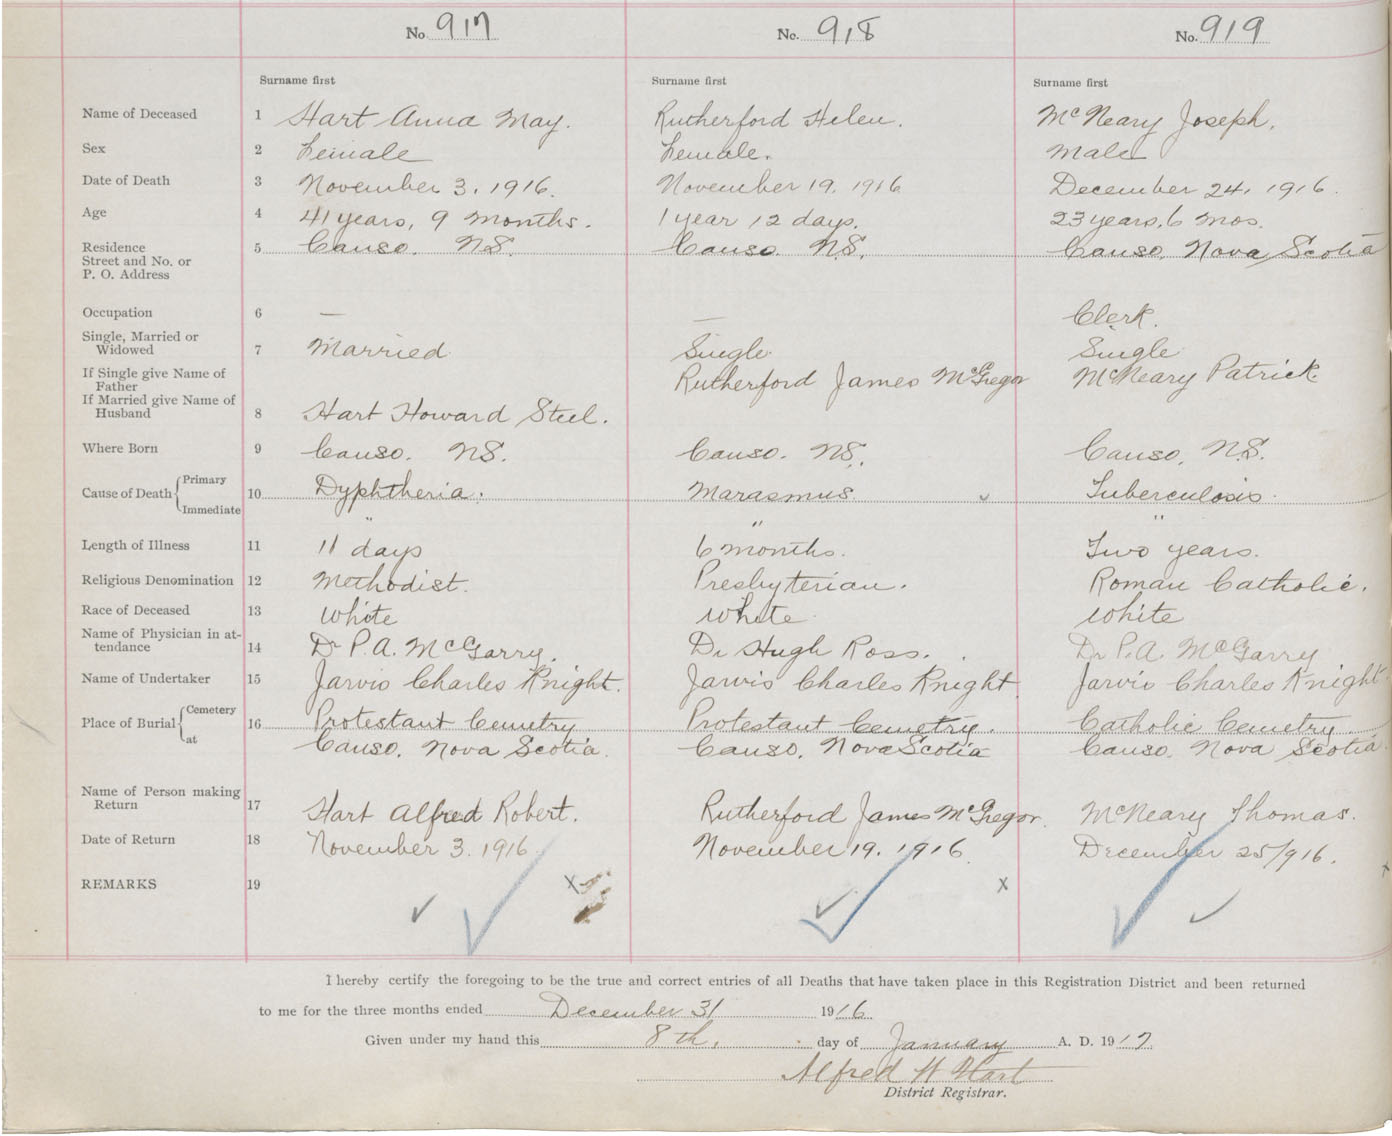 No. 917 No. 918 No. 919
Surname first Surname first Surname first
Name of Deceased 1 Hart Anna May. Rutherford Helen. McNeary Joseph.
Sex 2 Female Female. Male
Date of Death 3 November 3, 1916. November 19. 1916 December 24, 1916.
Age 4 41 years, 9 months. 1 year 12 days. 23 years, 6 mos.
Residence 5 Canso. N.S. Canso. N.S. Canso, Nova Scotia
Street and No. or
P. O. Address
Occupation 6 — — Clerk.
Single, Married or
Widowed 7 Married Single Single
If Single give Name of Rutherford James McGregor McNeary Patrick
Father
If Married give Name of
Husband 8 Hart Howard Steel.
Where Born 9 Canso. N.S. Canso. N.S. Canso, N.S.
Primary
Cause of Death 10 Dyphtheria. Marasmus Tuberculosis
Immediate
" " "
Length of Illness 11 11 days 6 months. Two years.
Religious Denomination 12 Methodist. Presbyterian. Roman Catholic.
Race of Deceased 13 white white white
Name of Physician in at-
tendance 14 Dr P.A. McGarry. Dr Hugh Ross. Dr P.A. McGarry
Name of Undertaker 15 Jarvis Charles Knight. Jarvis Charles Knight Jarvis Charles Knight
Cemetery
Place of Burial 16 Protestant Cemetry Protestant Cemetry. Catholic Cemetry
at Canso, Nova Scotia. Canso, Nova Scotia Canso, Nova Scotia
Name of Person making
Return 17 Hart Alfred Robert. Rutherford James McGregor. McNeary Thomas.
Date of Return 18 November 3. 1916 November 19. 1916 December 25/916.
REMARKS 19 x x x
I hereby certify the foregoing to be the true and correct entries of all Deaths that have taken place in this Registration District and been returned
to me for the three months ended December 31 1916
Given under my hand this 8th. day of January A. D. 1917
Alfred W Hart
District Registrar.